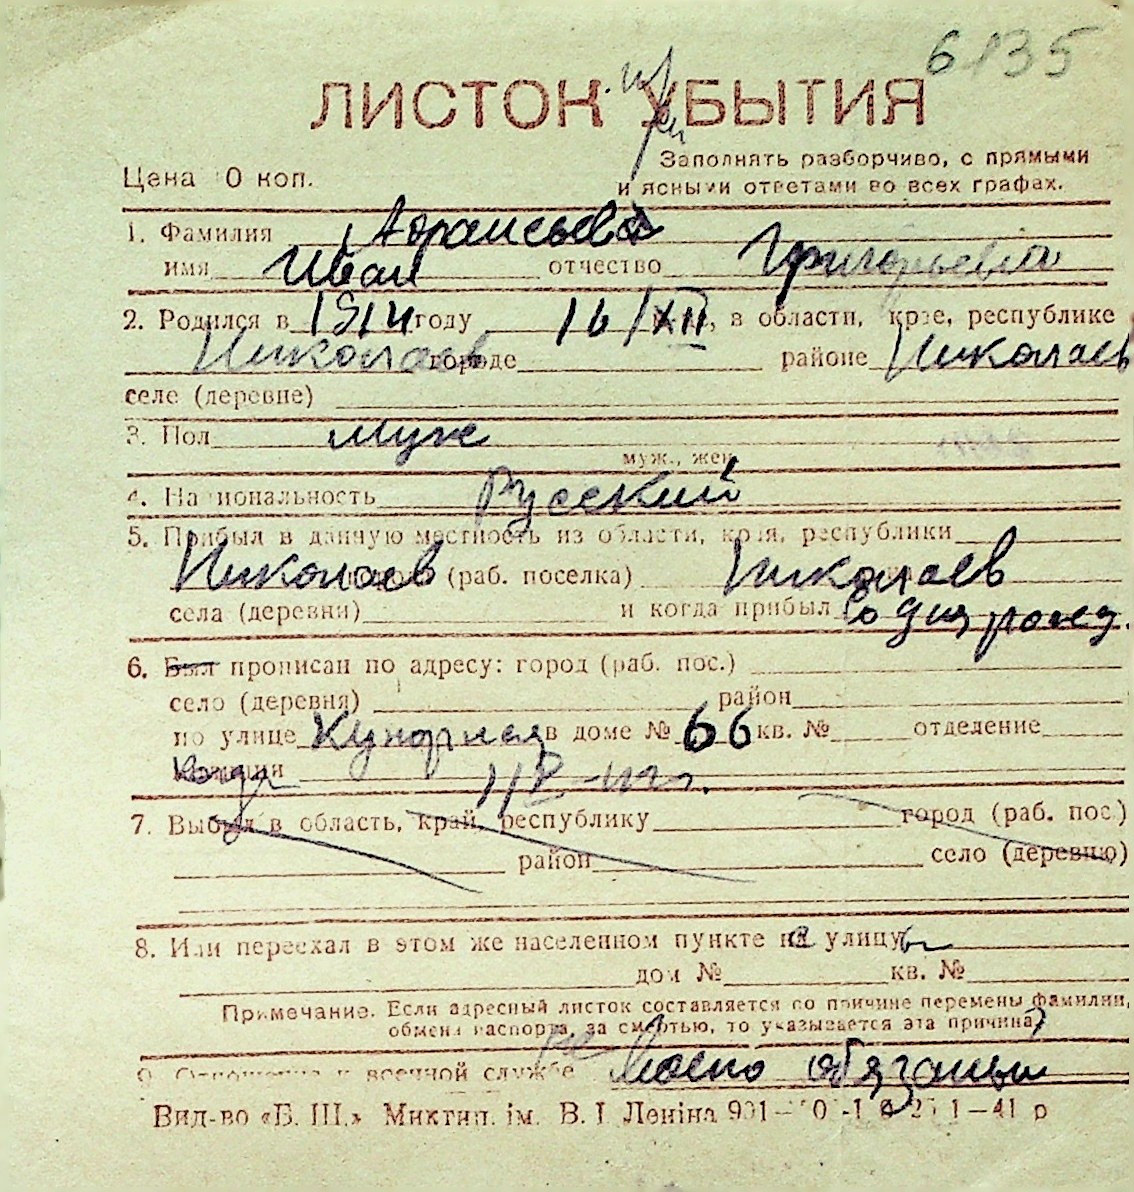 6135
ЛИСТОК УБЫТИЯ
Цена 0 коп.
Заполнять разборчиво, с прямыми
и ясными ответами во всех графах.
1. Фамилия
имя Иван отчество Григорьевич
2. Родился в 1914 году 16/XII, в области, крае, республике
Николаев городе районе Николаев
селе (деревне)
3. Пол муж
муж., жен.
4. Национальность Русский
5. Прибыл в данную местность из области, края, республики
Николаев (раб. поселка) Николаев
села (деревни) и когда прибыл Со дня рожд.
6. Был прописан по адресу: город (раб. пос.)
село (деревня) район
по улице в доме № 66 кв. № отделение
милиции
7. Выбыл в область, край, республику город (раб. пос.)
район село (деревню)
8. Или переехал в этом же населенном пункте на улицу
дом № кв. №
Примечание. Если адресный листок составляется по причине перемены фамилии,
обмена паспорта, за смертью, то указывается эта причина
9. Отношение к военной службе Военно обязаный
Вид-во «Б. Ш.» Миктип. ім. В. І Леніна 41 р